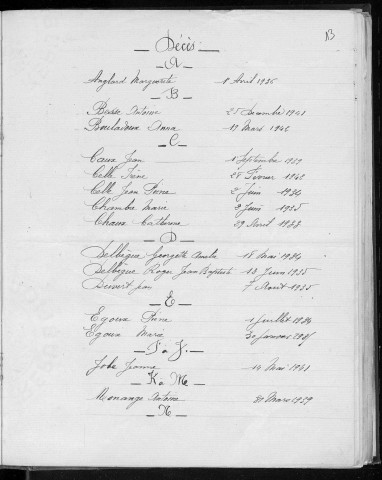 13
Décès
A
Anglard Marguerite 8 Avril 1936
B
Besse Antoine 25 Décembre 1941
Bouladoux Anna 17 Mars 1942
C
Caux Jean 1 Septembre 1939
Celle Irène 28 Février 1942
Celle Jean 2 Juin 1936
Chambre Marie 9 Juin 1935
Chaux Catherine 29 Avril
D
Delbègue Georgette 15 Mai 1936
Delbègue Roger Jean Baptiste 18 Juin 1935
7 Août 1935
E
Egoux 1 Juillet 1936
Egoux 30 Janvier
I à J.
Jobe Jeanne 14 Mai 1941
K à M
Monange Antoine 30 Mars 1939
N